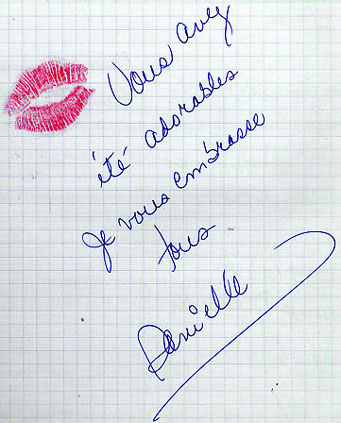 Vous avez
été adorables
je vous embrasse
tous
Danielle